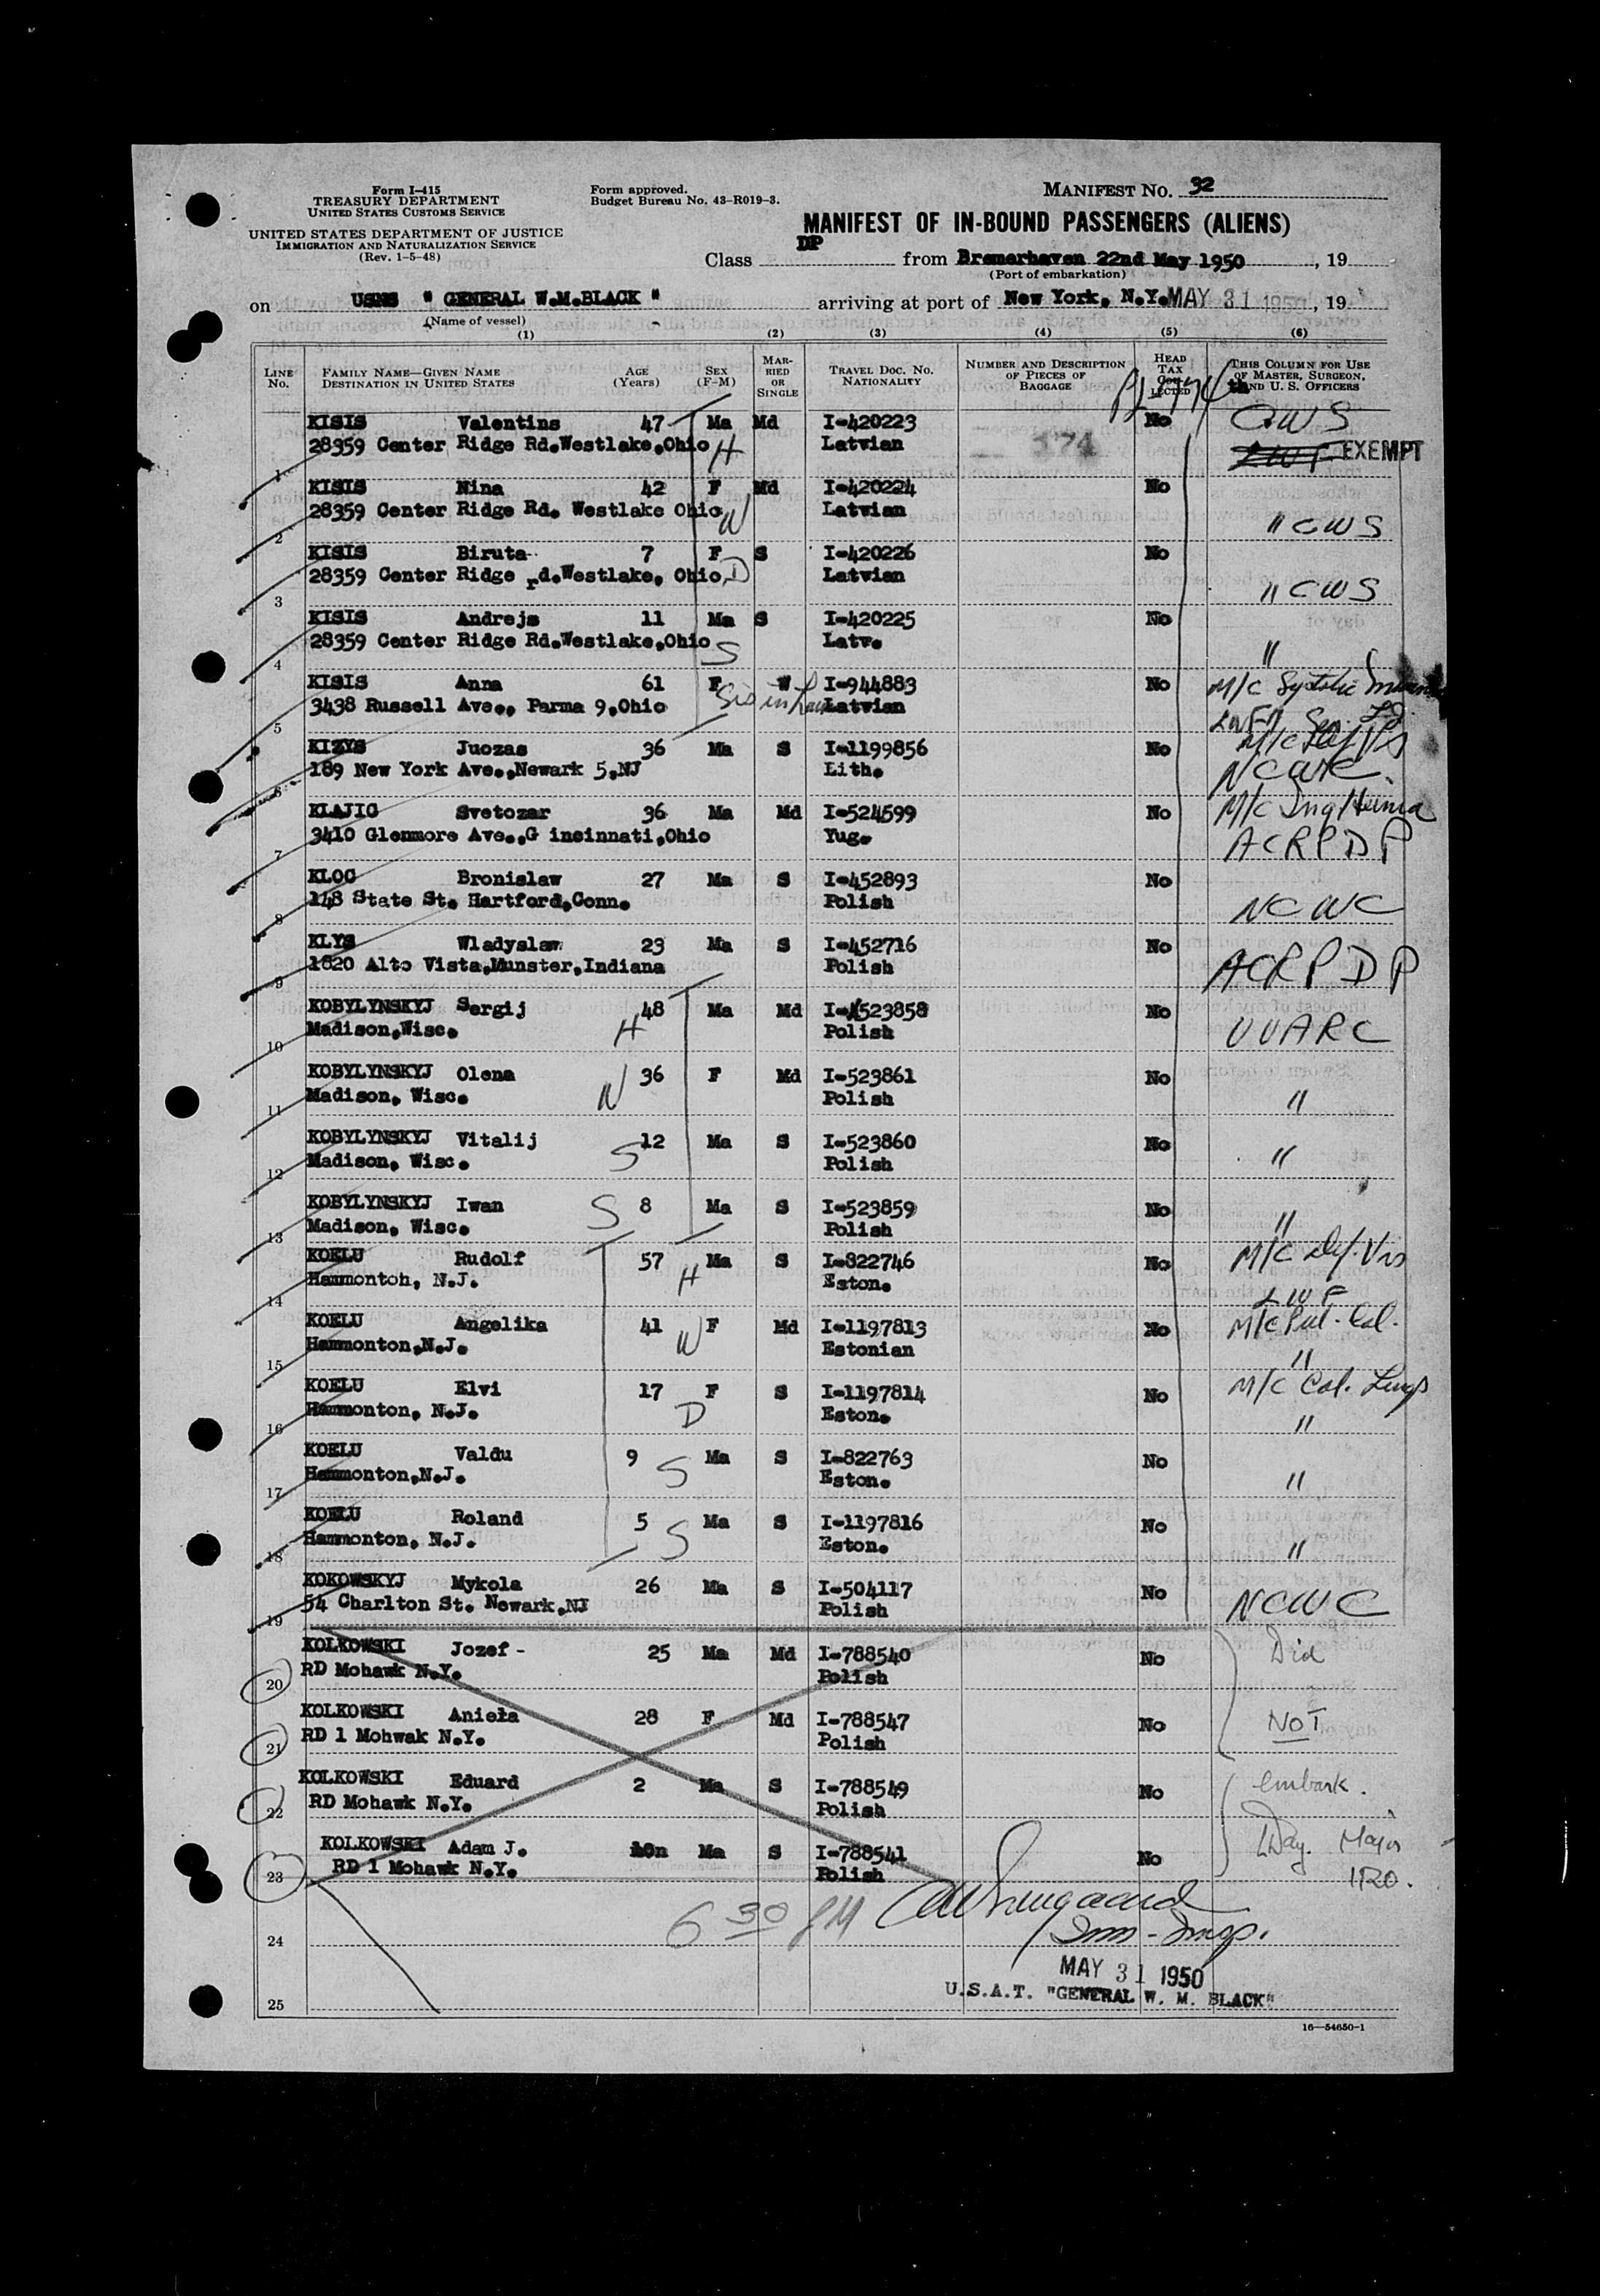 Form I-415
TREASURY DEPARTMENT
UNITED STATES CUSTOMS SERVICE
UNITED STATES DEPARTMENT OF JUSTICE
IMMIGRATION AND NATURALIZATION SERVICE
(Rev. 1-5-48)
Form approved.
Budget Bureau No. 43-R019-3.
MANIFEST No. 32
MANIFEST OF IN-BOUND PASSENGERS (ALIENS)
Class DP from Bremerhaven 22nd May 1950, 19
(Port of embarkation)
on USNS " GENERAL W.M.BLACK " arriving at port of New York, N.Y. MAY 31 1950, 19
(Name of vessel)
(1) (2) (3) (4) (5) (6)
LINE No. FAMILY NAME—GIVEN NAME DESTINATION IN UNITED STATES AGE (Years) SEX (F-M) MARRIED OR SINGLE TRAVEL DOC. No. NATIONALITY NUMBER AND DESCRIPTION OF PIECES OF BAGGAGE HEAD TAX COLLECTED THIS COLUMN FOR USE OF MASTER, SURGEON, AND U. S. OFFICERS
PL 774
KISIS Valentins 47 Ma Md I-420223 No CWS
1 28359 Center Ridge Rd.Westlake,Ohio H Latvian 374 LWF EXEMPT
KISIS Nina 42 F Md I-420224 No
2 28359 Center Ridge Rd. Westlake Ohio W Latvian " CWS
KISIS Biruta 7 F S I-420226 No
3 28359 Center Ridge rd.Westlake, Ohio D Latvian " CWS
KISIS Andrejs 11 Ma S I-420225 No
4 28359 Center Ridge Rd.Westlake,Ohio S Latv. "
KISIS Anna 61 F W I-944883 No M/C Systolic
5 3438 Russell Ave., Parma 9,Ohio Sis in Law Latvian LWF
KIZYS Juozas 36 Ma S I-1199856 No M/C Def Vis
6 189 New York Ave.,Newark 5,NJ Lith. NCWC
KLAJIC Svetozar 36 Ma Md I-524599 No M/C Ing Hernia
7 3410 Glenmore Ave.,C incinnati,Ohio Yug. ACRPDP
KLOC Bronislaw 27 Ma S I-452893 No
8 148 State St. Hartford,Conn. Polish NCWC
KLYS Wladyslaw 23 Ma S I-452716 No
9 1820 Alto Vista,Munster,Indiana Polish ACRPDP
KOBYLYNSKYJ Sergij 48 Ma Md I-523858 No
10 Madison,Wisc. H Polish UUARC
KOBYLYNSKYJ Olena 36 F Md I-523861 No
11 Madison, Wisc. W Polish "
KOBYLYNSKYJ Vitalij 12 Ma S I-523860 No
12 Madison, Wisc. S Polish "
KOBYLYNSKYJ Iwan S 8 Ma S I-523859 No
13 Madison, Wisc. Polish "
KOELU Rudolf 57 Ma S I-822746 No M/C Def. Vis
14 Hammontoh, N.J. H Eston. LWF
KOELU Angelika 41 F Md I-1197813 No M/C Pul. Cal.
15 Hammonton,N.J. W Estonian "
KOELU Elvi 17 F S I-1197814 No M/C Cal. Lungs
16 Hammonton, N.J. D Eston. "
KOELU Valdu 9 Ma S I-822763 No
17 Hammonton,N.J. S Eston. "
KOELU Roland 5 Ma S I-1197816 No
18 Hammonton, N.J. S Eston. "
KOKOWSKYJ Mykola 26 Ma S I-504117 No
19 54 Charlton St. Newark,NJ Polish NCWC
KOLKOWSKI Jozef - 25 Ma Md I-788540 No Did
20 RD Mohawk N.Y. Polish
KOLKOWSKI Anieła 28 F Md I-788547 No NOT
21 RD 1 Mohwak N.Y. Polish
KOLKOWSKI Eduard 2 Ma S I-788549 No embark.
22 RD Mohawk N.Y. Polish
KOLKOWSKI Adam J. 10m Ma S I-788541 No
23 RD 1 Mohawk N.Y. Polish
6 30 PM
Imm- Insp.
24
MAY 31 1950
U.S.A.T. "GENERAL W. M. BLACK"
25
16—54650-1